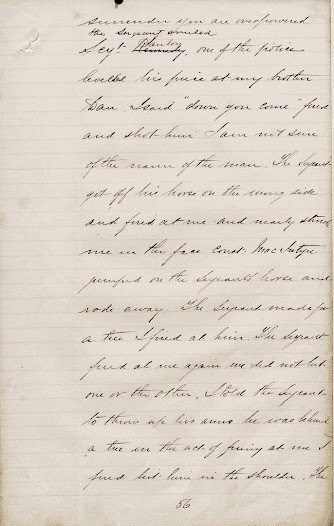 surrender you are overpowered
the Sergeant smiled
Sergt Scanlon Kennedy, one of the police
levelled his piece at my brother
Dan. I said "down you come" fired
and shot him I am not sure
of the name of the man. The Sergeant
got off his horse on the wrong side
and fired at me and nearly struck
me in the face Const. MacIntyre
jumped on the Sergeants horse and
rode away. The Sergeant made for
a tree I fired at him. The Sergeant
fired at me again we did not hit
one or the other. I told the Sergeant
to throw up his arms he was behind
a tree in the act of firing at me I
fired hit him in the shoulder. The
56